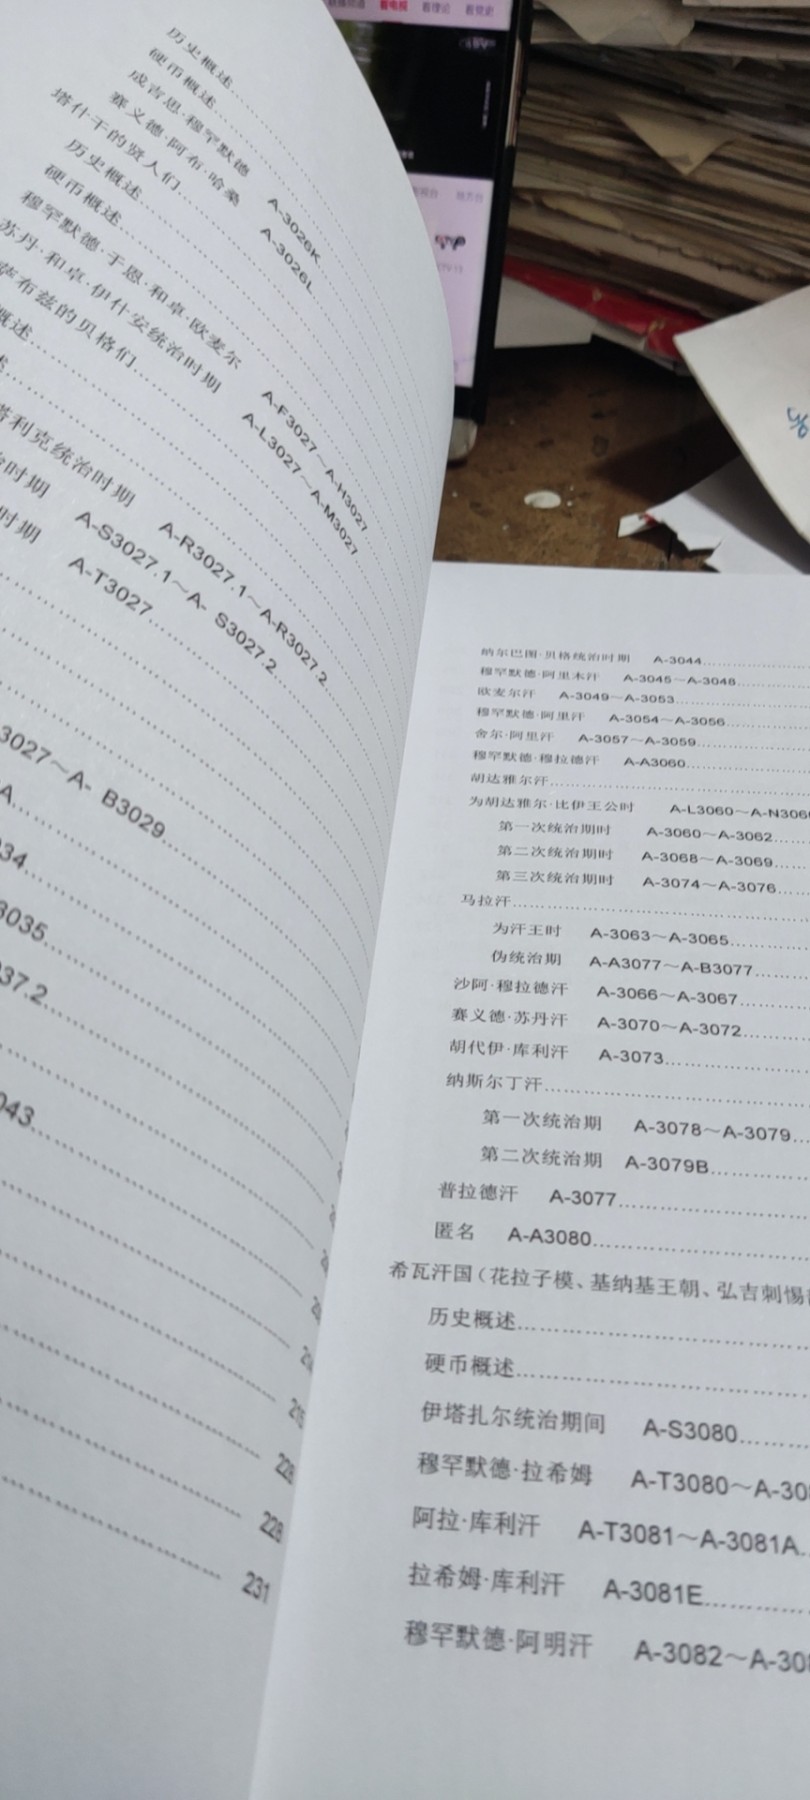 看电视 看理论 看党史
历史概述
硬币概述
成吉思·穆罕默德 A-3026K
赛义德·阿布·哈桑 A-3026L
塔什干的贤人们
历史概述
硬币概述
穆罕默德·于恩·和卓·欧麦尔 A-F3027~A-H3027
苏丹·和卓·伊什安统治时期 A-L3027~A-M3027
萨布兹的贝格们
概述
述
塔利克统治时期 A-R3027.1~A-R3027.2
治时期 A-S3027.1~A- S3027.2
时期 A-T3027
3027~A- B3029
A
034
3035
037.2
043
228
228
231
纳尔巴图·贝格统治时期 A-3044
穆罕默德·阿里木汗 A-3045~A-3048
欧麦尔汗 A-3049~A-3053
穆罕默德·阿里汗 A-3054~A-3056
舍尔·阿里汗 A-3057~A-3059
穆罕默德·穆拉德汗 A-A3060
胡达雅尔汗
为胡达雅尔·比伊王公时 A-L3060~A-N3060
第一次统治期时 A-3060~A-3062
第二次统治期时 A-3068~A-3069
第三次统治期时 A-3074~A-3076
马拉汗
为汗王时 A-3063~A-3065
伪统治期 A-A3077~A-B3077
沙阿·穆拉德汗 A-3066~A-3067
赛义德·苏丹汗 A-3070~A-3072
胡代伊·库利汗 A-3073
纳斯尔丁汗
第一次统治期 A-3078~A-3079
第二次统治期 A-3079B
普拉德汗 A-3077
匿名 A-A3080
希瓦汗国（花拉子模、基纳基王朝、弘吉刺惕
历史概述
硬币概述
伊塔扎尔统治期间 A-S3080
穆罕默德·拉希姆 A-T3080~A-30
阿拉·库利汗 A-T3081~A-3081A
拉希姆·库利汗 A-3081E
穆罕默德·阿明汗 A-3082~A-30